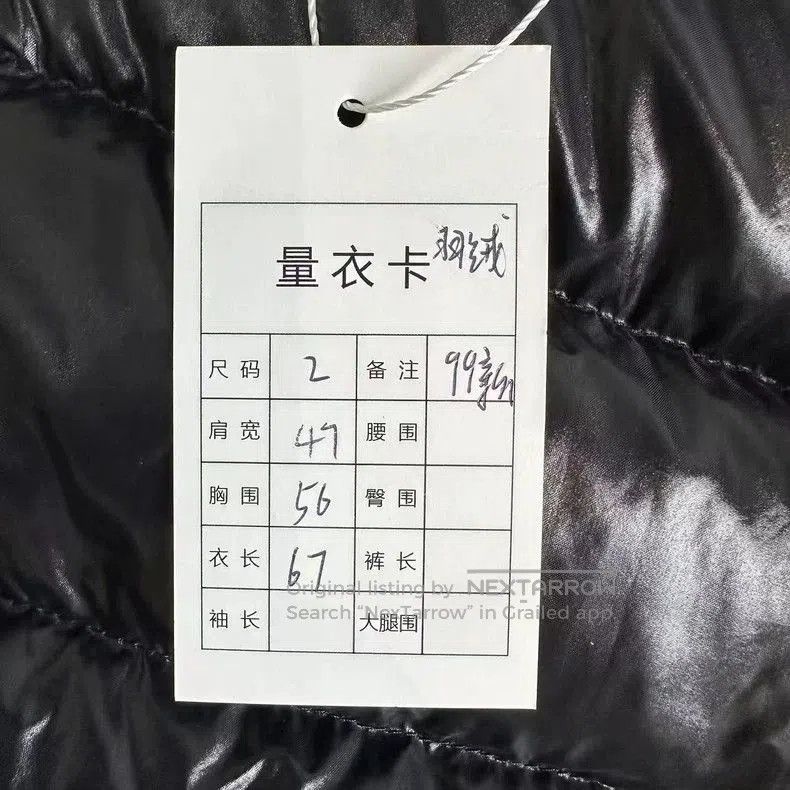 量衣卡 羽绒
尺码 2 备注 99新
肩宽 47 腰围
胸围 56 臀围
衣长 67 裤长
袖长 大腿围
Original listing by NEXTARROW
Search “NexTarrow” in Grailed app